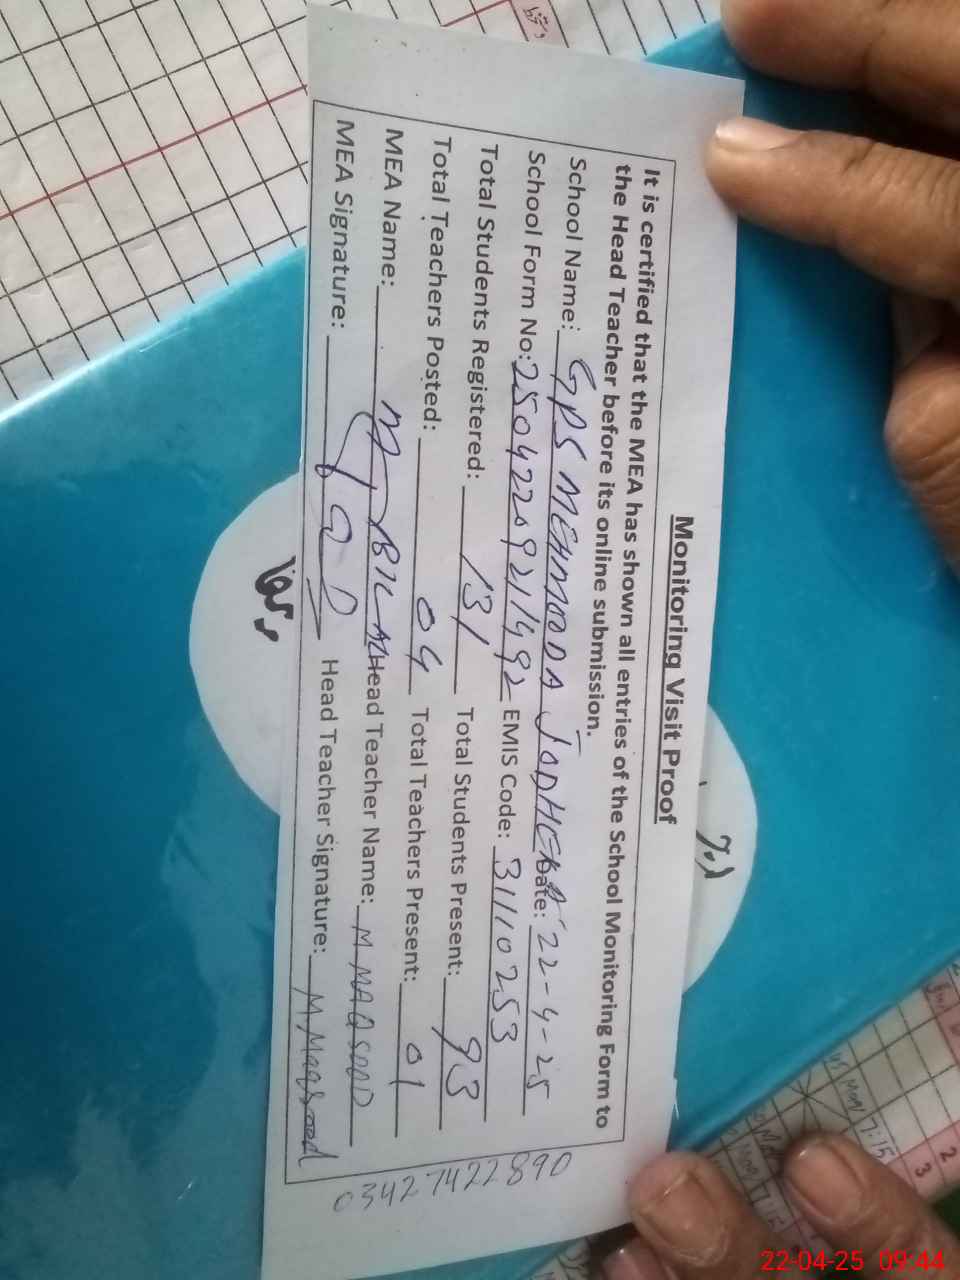 Monitoring Visit Proof
It is certified that the MEA has shown all entries of the School Monitoring Form to
the Head Teacher before its online submission.
School Name: GPS MEHMOODA JODHEKA Date: 22-4-25
School Form No: 25042209211492 EMIS Code: 31110253
Total Students Registered: 131 Total Students Present: 93
Total Teachers Posted: 04 Total Teachers Present: 01
MEA Name: M. BILAL Head Teacher Name: M MAQSOOD
MEA Signature: Head Teacher Signature: M. Maqsood
03427422890
22-04-25 09:44